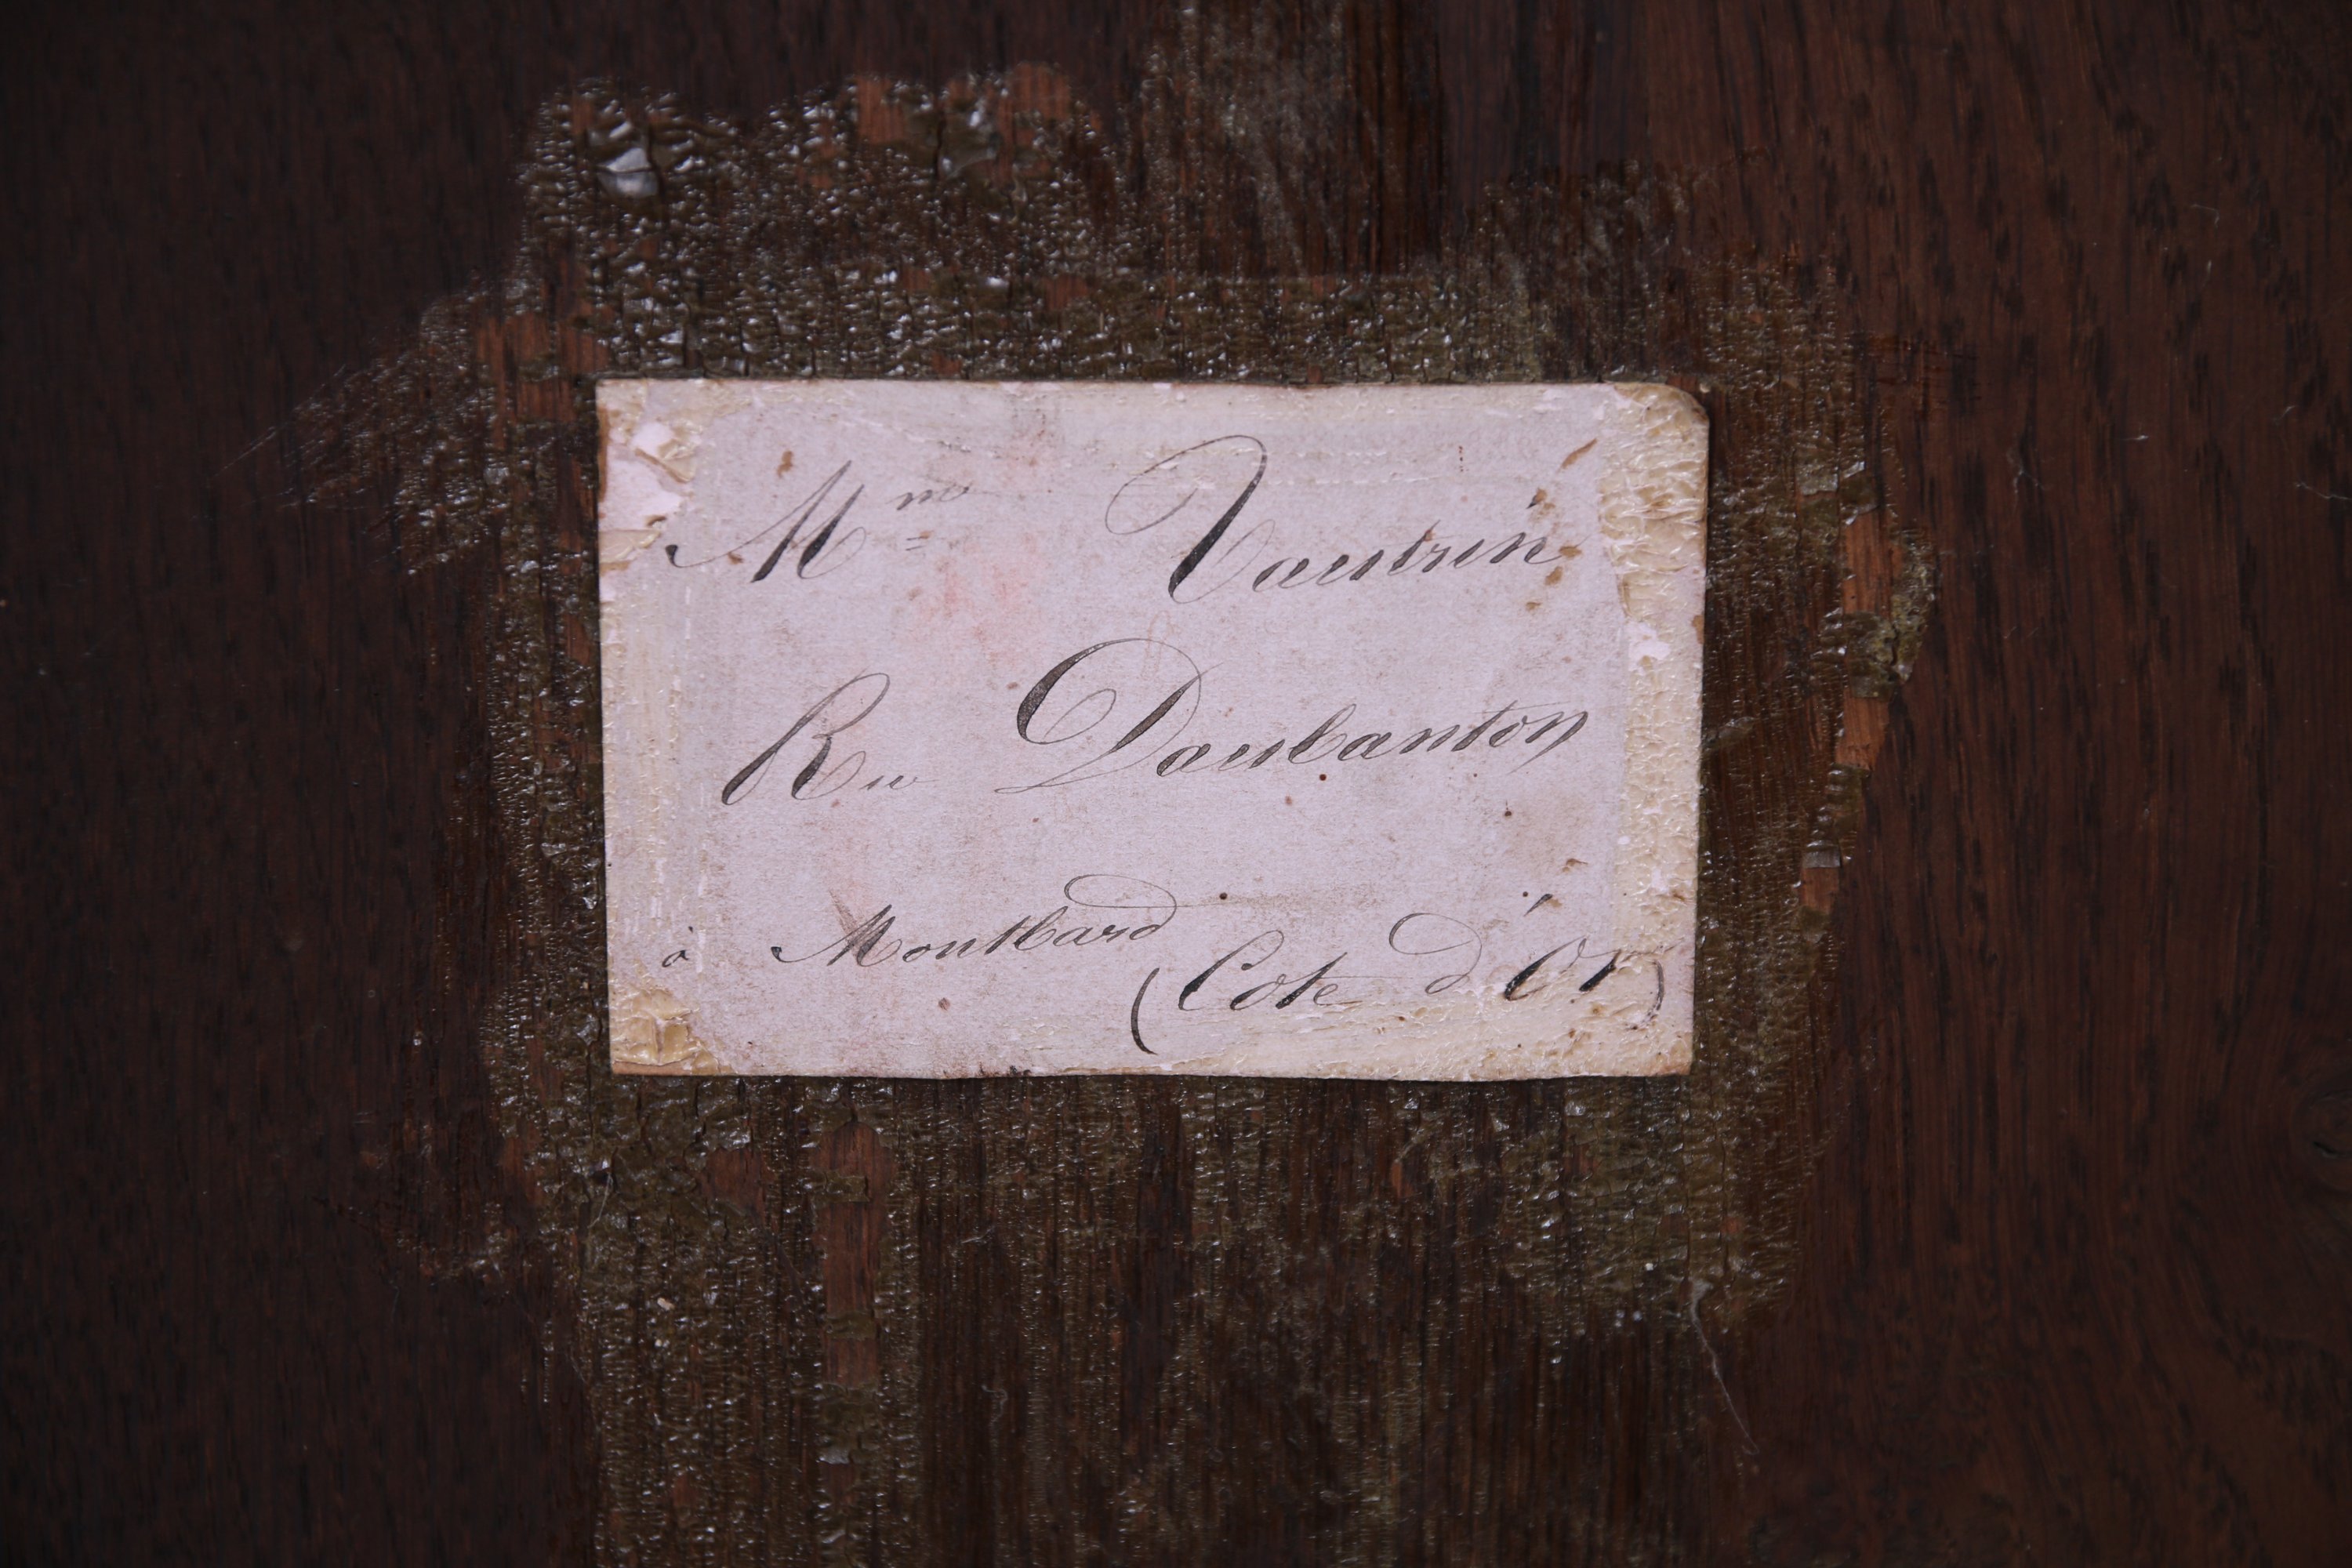 Mme Vautrin
Rue Daubanton
à Montbard
(Cote d'Or)